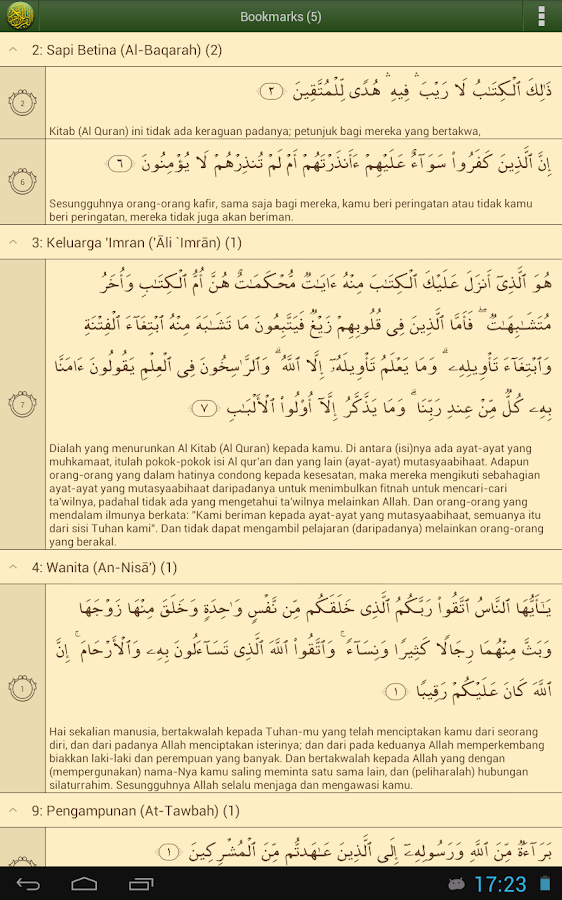 Bookmarks (5)
2: Sapi Betina (Al-Baqarah) (2)
2
ذَٰلِكَ ٱلْكِتَٰبُ لَا رَيْبَ ۛ فِيهِ ۛ هُدًى لِّلْمُتَّقِينَ ٢
Kitab (Al Quran) ini tidak ada keraguan padanya; petunjuk bagi mereka yang bertakwa,
6
إِنَّ ٱلَّذِينَ كَفَرُوا۟ سَوَآءٌ عَلَيْهِمْ ءَأَنذَرْتَهُمْ أَمْ لَمْ تُنذِرْهُمْ لَا يُؤْمِنُونَ ٦
Sesungguhnya orang-orang kafir, sama saja bagi mereka, kamu beri peringatan atau tidak kamu
beri peringatan, mereka tidak juga akan beriman.
3: Keluarga 'Imran ('Āli `Imrān) (1)
7
هُوَ ٱلَّذِىٓ أَنزَلَ عَلَيْكَ ٱلْكِتَٰبَ مِنْهُ ءَايَٰتٌ مُّحْكَمَٰتٌ هُنَّ أُمُّ ٱلْكِتَٰبِ وَأُخَرُ
مُتَشَٰبِهَٰتٌ ۖ فَأَمَّا ٱلَّذِينَ فِى قُلُوبِهِمْ زَيْغٌ فَيَتَّبِعُونَ مَا تَشَٰبَهَ مِنْهُ ٱبْتِغَآءَ ٱلْفِتْنَةِ
وَٱبْتِغَآءَ تَأْوِيلِهِۦ ۗ وَمَا يَعْلَمُ تَأْوِيلَهُۥٓ إِلَّا ٱللَّهُ ۗ وَٱلرَّٰسِخُونَ فِى ٱلْعِلْمِ يَقُولُونَ ءَامَنَّا
بِهِۦ كُلٌّ مِّنْ عِندِ رَبِّنَا ۗ وَمَا يَذَّكَّرُ إِلَّآ أُو۟لُوا۟ ٱلْأَلْبَٰبِ ٧
Dialah yang menurunkan Al Kitab (Al Quran) kepada kamu. Di antara (isi)nya ada ayat-ayat yang
muhkamaat, itulah pokok-pokok isi Al qur'an dan yang lain (ayat-ayat) mutasyaabihaat. Adapun
orang-orang yang dalam hatinya condong kepada kesesatan, maka mereka mengikuti sebahagian
ayat-ayat yang mutasyaabihaat daripadanya untuk menimbulkan fitnah untuk mencari-cari
ta'wilnya, padahal tidak ada yang mengetahui ta'wilnya melainkan Allah. Dan orang-orang yang
mendalam ilmunya berkata: "Kami beriman kepada ayat-ayat yang mutasyaabihaat, semuanya itu
dari sisi Tuhan kami". Dan tidak dapat mengambil pelajaran (daripadanya) melainkan orang-orang
yang berakal.
4: Wanita (An-Nisā') (1)
1
يَٰٓأَيُّهَا ٱلنَّاسُ ٱتَّقُوا۟ رَبَّكُمُ ٱلَّذِى خَلَقَكُم مِّن نَّفْسٍ وَٰحِدَةٍ وَخَلَقَ مِنْهَا زَوْجَهَا
وَبَثَّ مِنْهُمَا رِجَالًا كَثِيرًا وَنِسَآءً ۚ وَٱتَّقُوا۟ ٱللَّهَ ٱلَّذِى تَسَآءَلُونَ بِهِۦ وَٱلْأَرْحَامَ ۚ إِنَّ
ٱللَّهَ كَانَ عَلَيْكُمْ رَقِيبًا ١
Hai sekalian manusia, bertakwalah kepada Tuhan-mu yang telah menciptakan kamu dari seorang
diri, dan dari padanya Allah menciptakan isterinya; dan dari pada keduanya Allah memperkembang
biakkan laki-laki dan perempuan yang banyak. Dan bertakwalah kepada Allah yang dengan
(mempergunakan) nama-Nya kamu saling meminta satu sama lain, dan (peliharalah) hubungan
silaturrahim. Sesungguhnya Allah selalu menjaga dan mengawasi kamu.
9: Pengampunan (At-Tawbah) (1)
بَرَآءَةٌ مِّنَ ٱللَّهِ وَرَسُولِهِۦٓ إِلَى ٱلَّذِينَ عَٰهَدتُّم مِّنَ ٱلْمُشْرِكِينَ ١
17:23